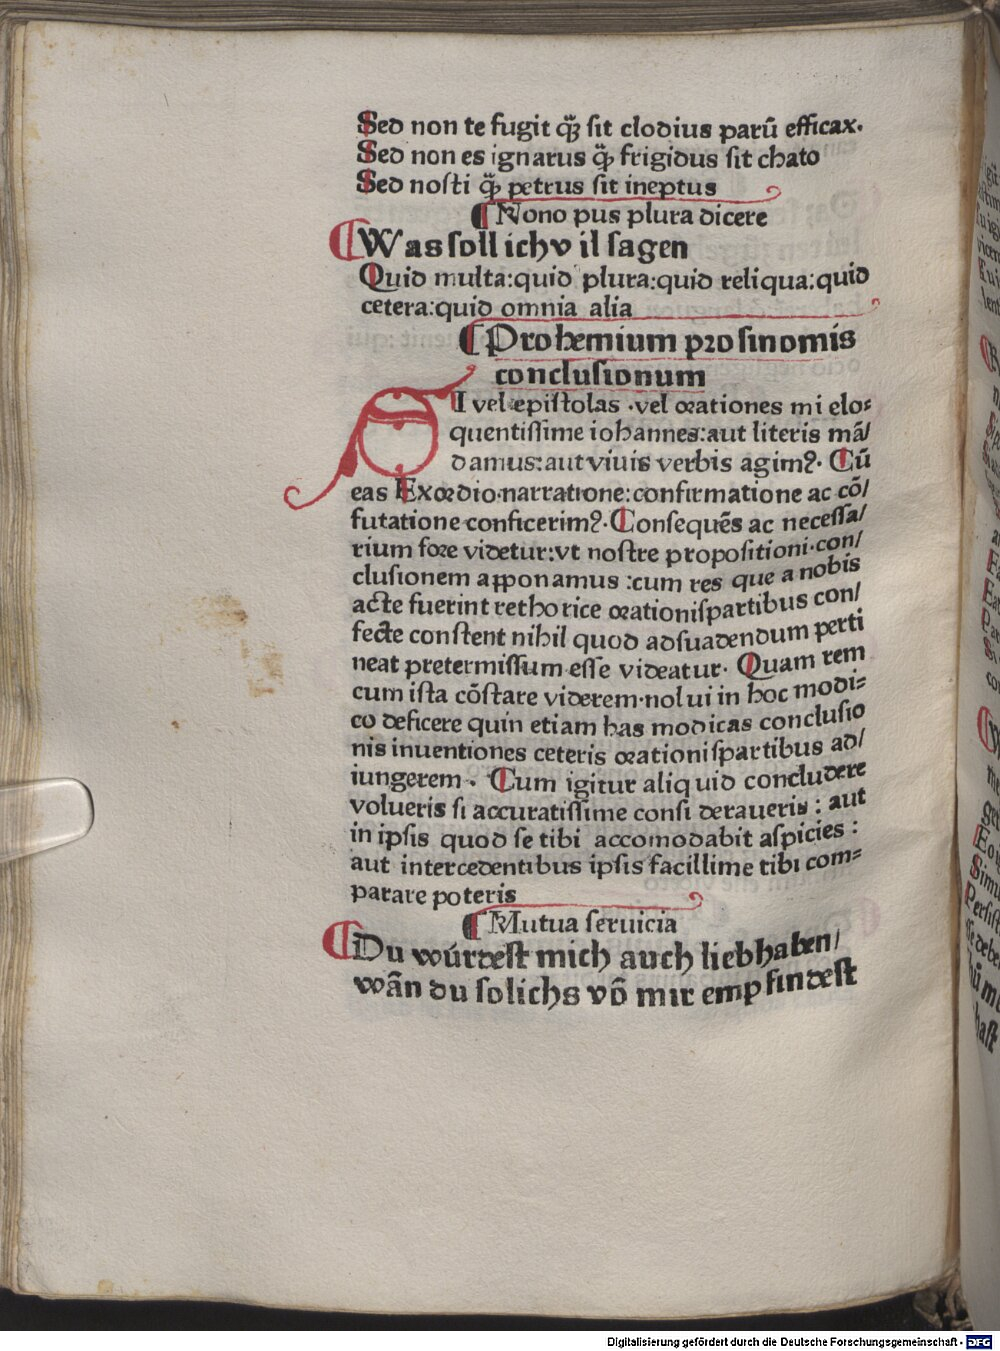 Sed non te fugit qȝ̃ sit clodius parū efficax.
Sed non es ignarus qȝ̃ frigidus sit chato
Sed nosti qȝ̃ petrus sit ineptus
¶ Nono pus plura dicere
¶ Was soll ich v il sagen
Quid multa:quid plura:quid reliqua:quid
cetera:quid omnia alia
¶ Prohemium pro sinomis
conclusionum
SI vel epistolas .vel orationes mi elo-
quentissime iohannes:aut literis mā/
damus:aut viuis verbis agim?. Cū
eas Exordio.narratione:confirmatione ac cō/
futatione conficerim?. Consequēs ac necessa/
rium fore videtur:vt nostre propositioni.con/
clusionem apponamus :cum res que a nobis
acte fuerint rethorice orationispartibus con/
fecte constent nihil quod adsuadendum perti
neat pretermissum esse videatur. Quam rem
cum ista cōstare viderem.nolui in hoc modi-
co deficere quin etiam has modicas conclusio
nis inuentiones ceteris orationispartibus ad/
iungerem . Cum igitur aliquid concludere
volueris si accuratissime consi deraueris : aut
in ipsis quod se tibi accomodabit aspicies :
aut intercedentibus ipsis facillime tibi com-
parare poteris
¶ Mutua seruicia
¶ Du würdest mich auch liebhaben/
wān du solichs vō mir empfindest
Digitalisierung gefördert durch die Deutsche Forschungsgemeinschaft - DFG